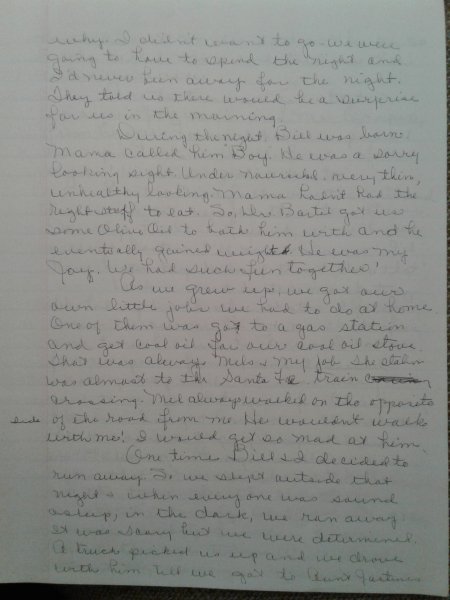 why I didn't want to go. We were
going to have to spend the night and
I'd never been away for the night.
They told us there would be a surprise
for us in the morning.
During the night, Bill was born.
Mama called him Boy. He was a sorry
looking sight. Under nourished. very thin,
unhealthy looking. Mama hadn't had the
right stuff to eat. So, Dr. got us
some Olive Oil to bath him with and he
eventually gained weight. He was my
Joy. We had such fun together!
As we grew up, we got our
own little jobs we had to do at home.
One of them was got to a gas station
and get coal oil for our coal oil stove.
That was always Mel's & my job. The station
was almost to the Santa Fe train
crossing. Mel always walked on the opposite
side of the road from me. He wouldn't walk
with me! I would get so mad at him.
One time Bill & I decided to
run away. So we slept outside that
night & when everyone was sound
asleep, in the dark, we ran away.
It was scary but we were determined.
A truck picked us up and we drove
with him till we got to Aunt